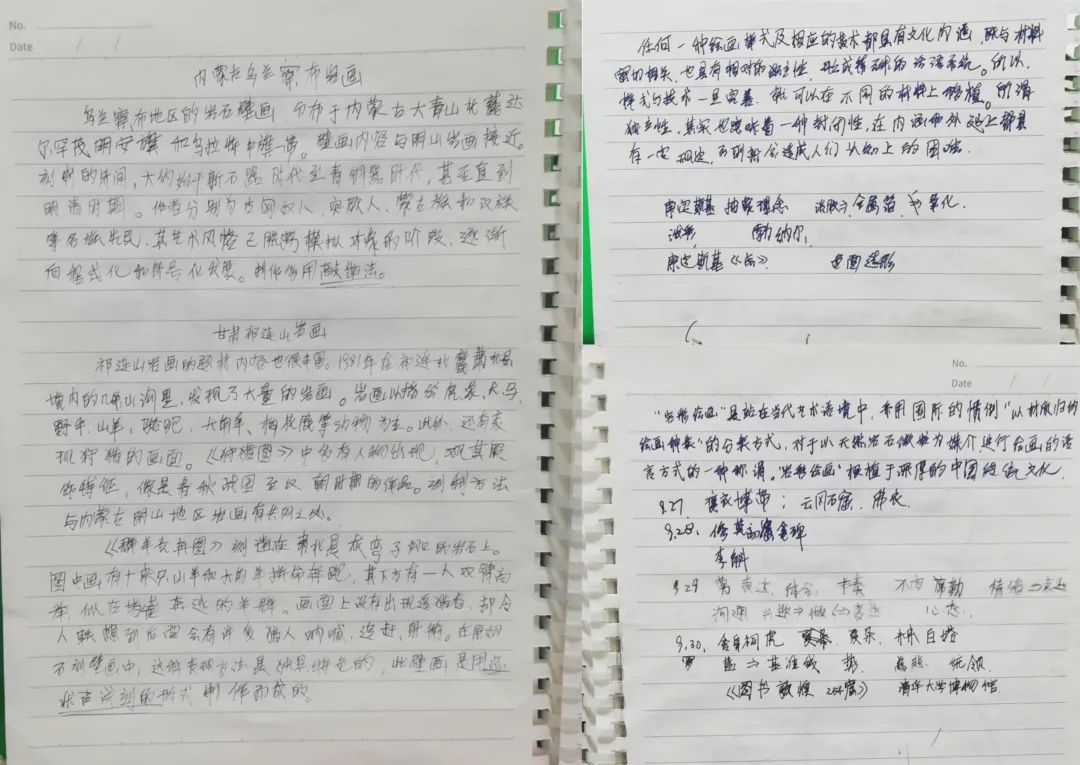 No.
Date
内蒙古乌兰察布岩画
乌兰察布地区的岩石壁画，分布于内蒙古大青山北麓达
尔罕茂明安旗和乌拉特中旗一带。壁画内容与阴山岩画接近。
刻制的时间，大约始于新石器时代至青铜器时代，甚至直到
明清时期。作者分别为古匈奴人，突厥人、蒙古族和汉族
等各族先民，其艺术风格已脱离模拟对象的阶段，逐渐
向程式化和符号化发展。制作多用敲凿法。
甘肃祁连山岩画
祁连山岩画的题材内容也很丰富。1981年在祁连北麓肃北县
境内的几条山沟里，发现了大量的岩画。岩画以描绘虎、象、犬、马、
野牛、山羊、骆驼、大角羊、梅花鹿等动物为主。此外，还有表
现狩猎的画面。《狩猎图》中多有人物出现，观其服
饰特征，像是春秋战国至汉朝时期的作品。刻制方法
与内蒙古阴山地区岩画有共同之处。
《群羊竞奔图》刻造在肃北县灰弯子沟口的岩石上。
图中画有十来只山羊和大角羊拼命奔跑，其下方有一人双臂高
举，似在堵截奔逃的羊群。画面上没有出现追猎者，却令
人联想到后面会有许多猎人呐喊、追赶、射箭。在原始
石刻壁画中，这种表现方法是独具特色的，此壁画是用
状石凿刻的形式制作而成的。
任何一种绘画样式及相应的技术都具有文化内涵，既与材料
密切相关，也具有相对的独立性，形成精确的话语系统。所以，
样式与技术一旦完善，就可以在不同的材料上移植。所谓
独立性，其实也意味着一种封闭性，在内涵和外延上都具
有一定规定，否则将会造成人们认知上的困难。
康定斯基 抽象理念 金属箔 氧化
勃纳尔，
康定斯基《 》 造形
No.
Date
“岩彩绘画”是站在当代艺术语境中，采用国际的惯例“以材质归纳
绘画种类”的分类方式，对于以天然岩石微粒为媒介进行绘画的语
言方式的一种称谓。“岩彩绘画”根植于深厚的中国传统文化
9.27 褒衣博带；云冈石窟 佛衣
9.28、修莫高窟碑
李斛
9.29 表达 体会 不同 情绪⇒表达
沟通 兴趣⇒做⇒ 心态
9.30、舍身饲虎 白塔
基准线 统领
《图书敦煌 254窟》 清华大学博物馆